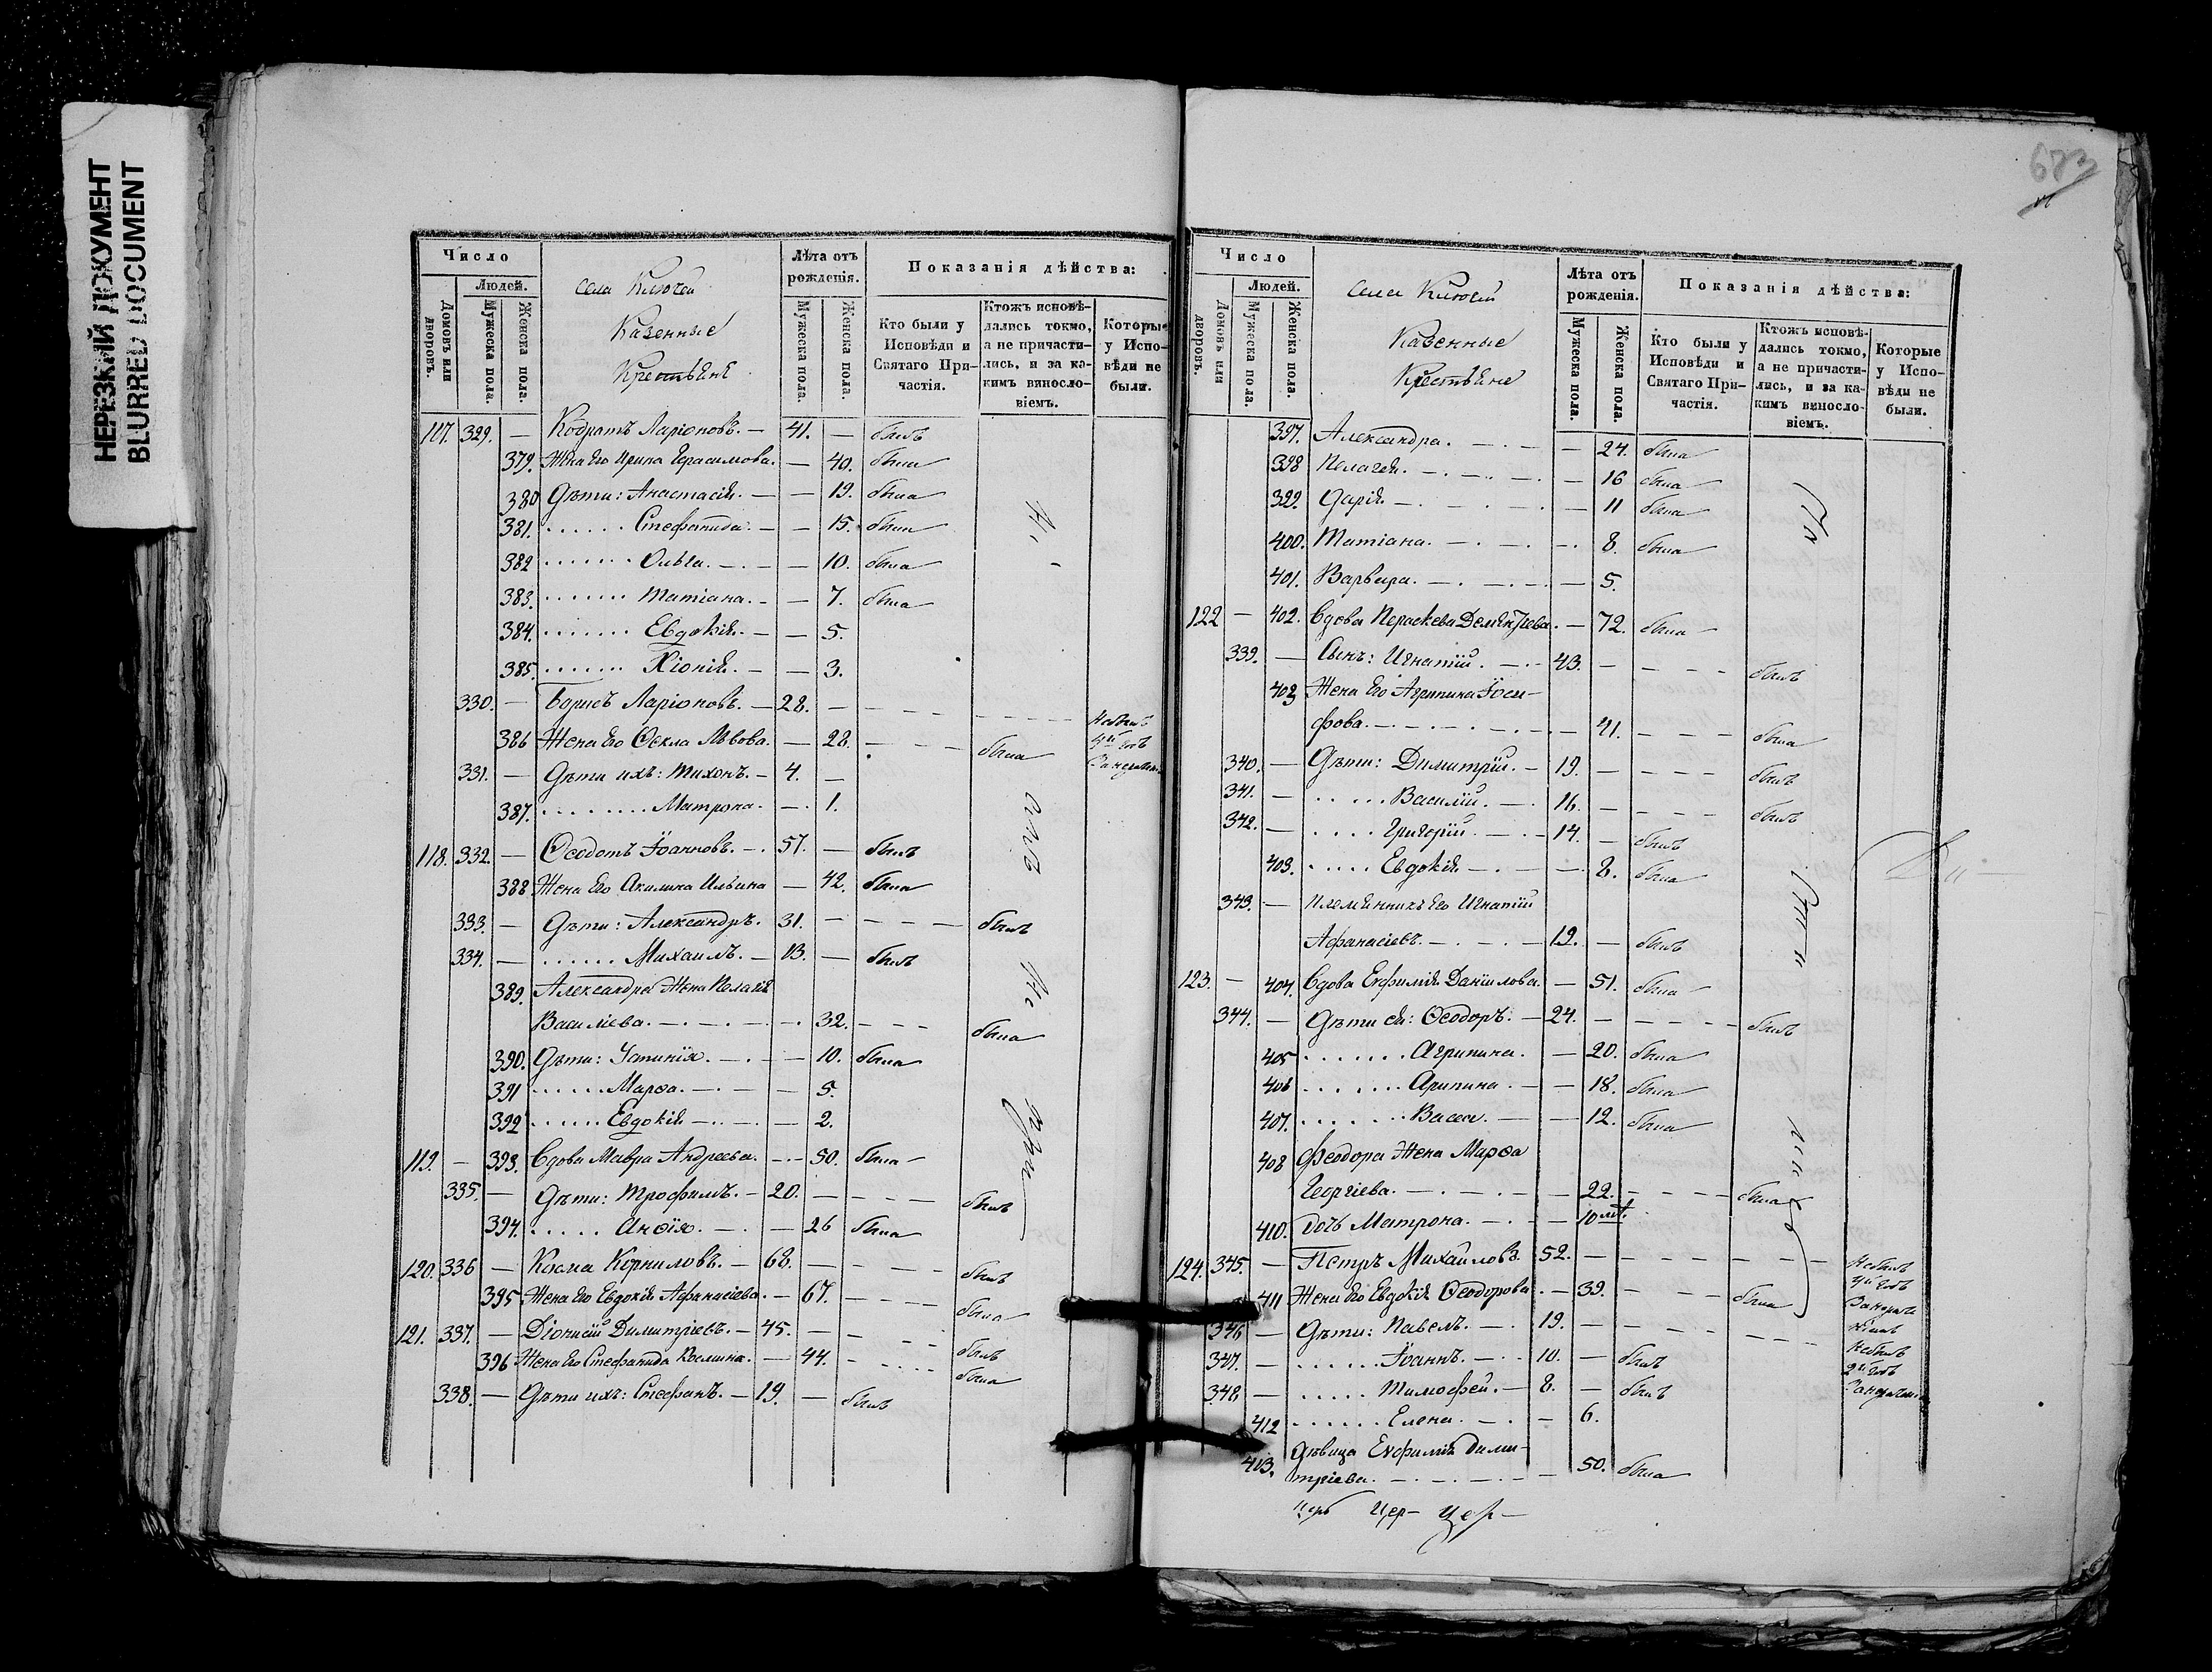 НЕРЕЗКИЙ ДОКУМЕНТ
BLURRED DOCUMENT
Число
Людей.
Домовъ или дворовъ.
Мужеска пола.
Женска пола.
села Ключей
Казенные
Крестьяне
Лѣта отъ рожденія.
Мужеска пола.
Женска пола.
Показанія дѣйства:
Кто были у Исповѣди и Святаго Причастія.
Ктожъ исповѣдались токмо, а не причастились, и за какимъ винословіемъ.
Которые у Исповѣди не были.
117. 329. — Кодратъ Ларіоновъ. — 41. — былъ
379. Жена его Ирина Герасимова. — 40. была
380 Дѣти: Анастасія. — — 19. была
381. Стефанида. — — 15. была
382 Ольга. — — 10. была
383. Татіана. — — 7. была
384. Евдокія. — — 5.
385. Хіонія. — — 3.
330. — Борисъ Ларіоновъ. — 28. — небылъ
386 Жена его Ѳекла Львова. — 28. — была
331. — Дѣти ихъ: Тихонъ. — 4. —
387. Матрона. — 1.
118. 332. — Ѳеодотъ Іоанновъ. — 57. — былъ
388 Жена его Акилина Ильина — 42. была
333. — Дѣти: Александръ. 31. — — — былъ
334. — Михаилъ. — 13. — былъ
389. Александра жена Пелагія
Василіева. — 32. — — — была
390. Дѣти: Устинія. — 10. была
391 Марѳа. — — 5.
392 Евдокія — — 2.
119. — 393. Вдова Мавра Андреева. — 50. была —
335. — Дѣти: Трофимъ. — 20. — — — былъ
394. Анѳія. — — 26 была
120. 336 — Косма Корниловъ. — 68. — — — былъ
395 Жена его Евдокія Афанасіева. — 67. — — — была
121. 337. — Діонисій Димитріевъ. — 45. — — былъ
396 Жена его Стефанида Космина. — 44. — была
338. — Дѣти ихъ: Стефанъ. — 19. — былъ
683
Число
Людей.
Домовъ или дворовъ.
Мужеска пола.
Женска пола.
села Ключей
Казенные
Крестьяне
Лѣта отъ рожденія.
Мужеска пола.
Женска пола.
Показанія дѣйства:
Кто были у Исповѣди и Святаго Причастія.
Ктожъ исповѣдались токмо, а не причастились, и за какимъ винословіемъ.
Которые у Исповѣди не были.
397. Александра. — — 24. была
398 Пелагея. — — 16 была
399. Дарія — — 11 была
400. Татіана. — — 8. была
401. Варвара. — — 5.
122 — 402. Вдова Параскева — 72. была —
339. — Сынъ: Игнатій. — 43. — — — былъ
403 Жена его Агрипина Іоси-
фова. — 41. — — — была
340. — Дѣти: Димитрій. — 19. — — — былъ
341. — Василій. — 16. — — — былъ
342. — Григорій. — 14. — былъ
403. Евдокія — — 8. была
343. — Племянникъ его Игнатій
Афанасіевъ. — 19. — былъ
123. — 404. Вдова Евфимія Даніилова. — 51. была —
344. — Дѣти ея: Ѳеодоръ. — 24. — — — былъ
405 Агрипина. — 20. была
406 Арипина. — — 18. была
407. Васса. — — 12. была
408 Феодора жена Марѳа
Георгіева. — — 22. — — — была
410. дочь Матрона. — — 10 мѣ.
124. 345. — Петръ Михайловъ. 52. — — — небылъ
411 Жена его Евдокія Ѳеодорова. — 39. — — — была
346 — Дѣти: Павелъ. — 19. — — — небылъ
347. — Іоаннъ. — 10. — былъ
348 — Тимофей. — 8. — былъ
412 Елена. — — 6.
413. Дѣвица Евфимія Дими-
тріева. — 50. была
Цер- Цер-